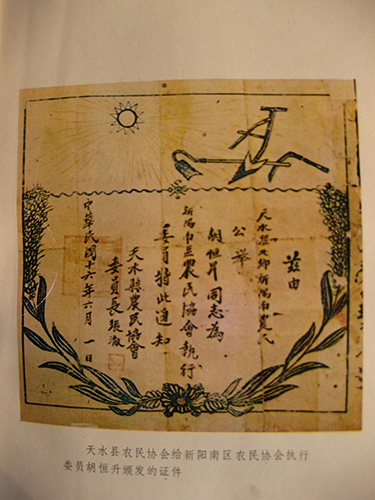 茲由
天水縣
公舉
胡恒升同志為
新陽南區農民協會執行
委員特此通知
天水縣農民協會
委員長張
中華民國十六年六月一日
天水县农民协会给新阳南区农民协会执行
委员胡恒升颁发的证件